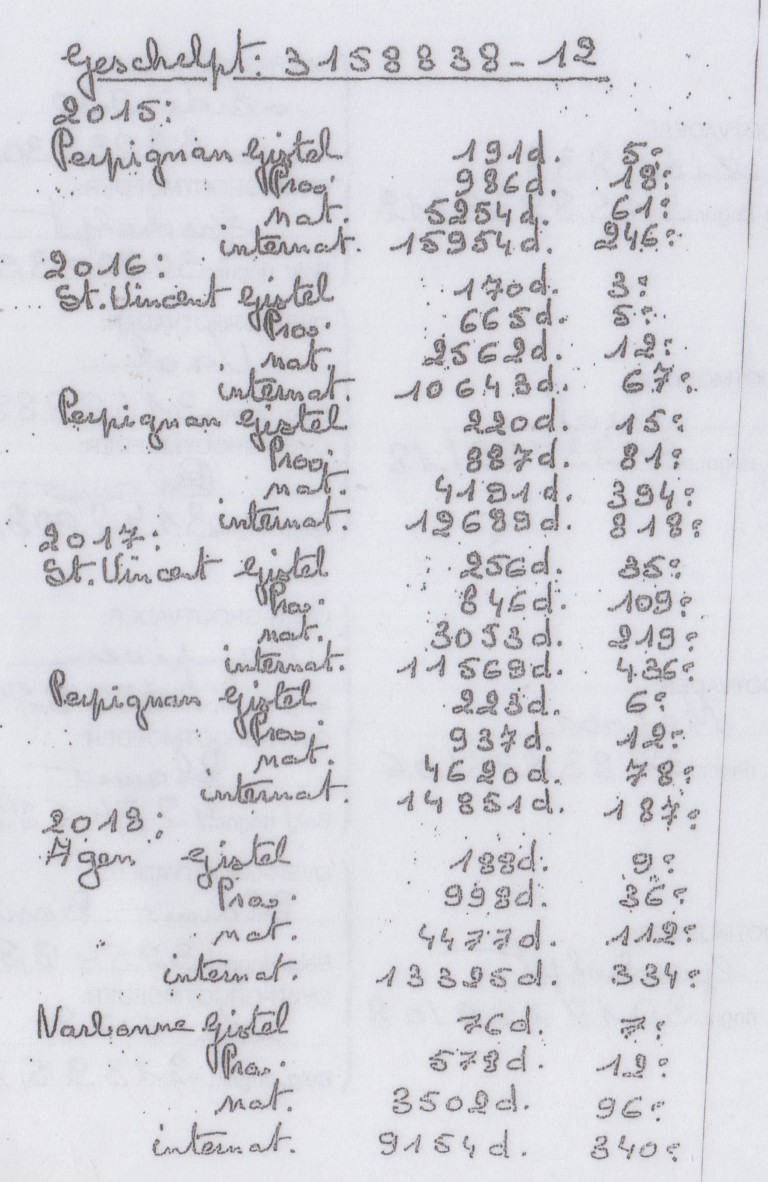 Geschelpt: 3158838-12
2015:
Perpignan Gistel 191d. 5e
Prov. 986d. 18e
nat. 5254d. 61e
internat. 15954d. 246e
2016:
St. Vincent Gistel 170d. 3e
Prov. 665d. 5e
nat. 2562d. 12e
internat. 10643d. 67e
Perpignan Gistel 220d. 15e
Prov. 887d. 81e
nat. 4191d. 394e
internat. 12689d. 818e
2017:
St. Vincent Gistel 256d. 35e
Prov. 846d. 109e
nat. 3053d. 219e
internat. 11569d. 436e
Perpignan Gistel 223d. 6e
Prov. 937d. 12e
nat. 4620d. 78e
internat. 14851d. 187e
2018:
Agen Gistel 188d. 9e
Prov. 998d. 36e
nat. 4477d. 112e
internat. 13395d. 334e
Narbonne Gistel 76d. 7e
Prov. 578d. 12e
nat. 3502d. 96e
internat. 9154d. 340e